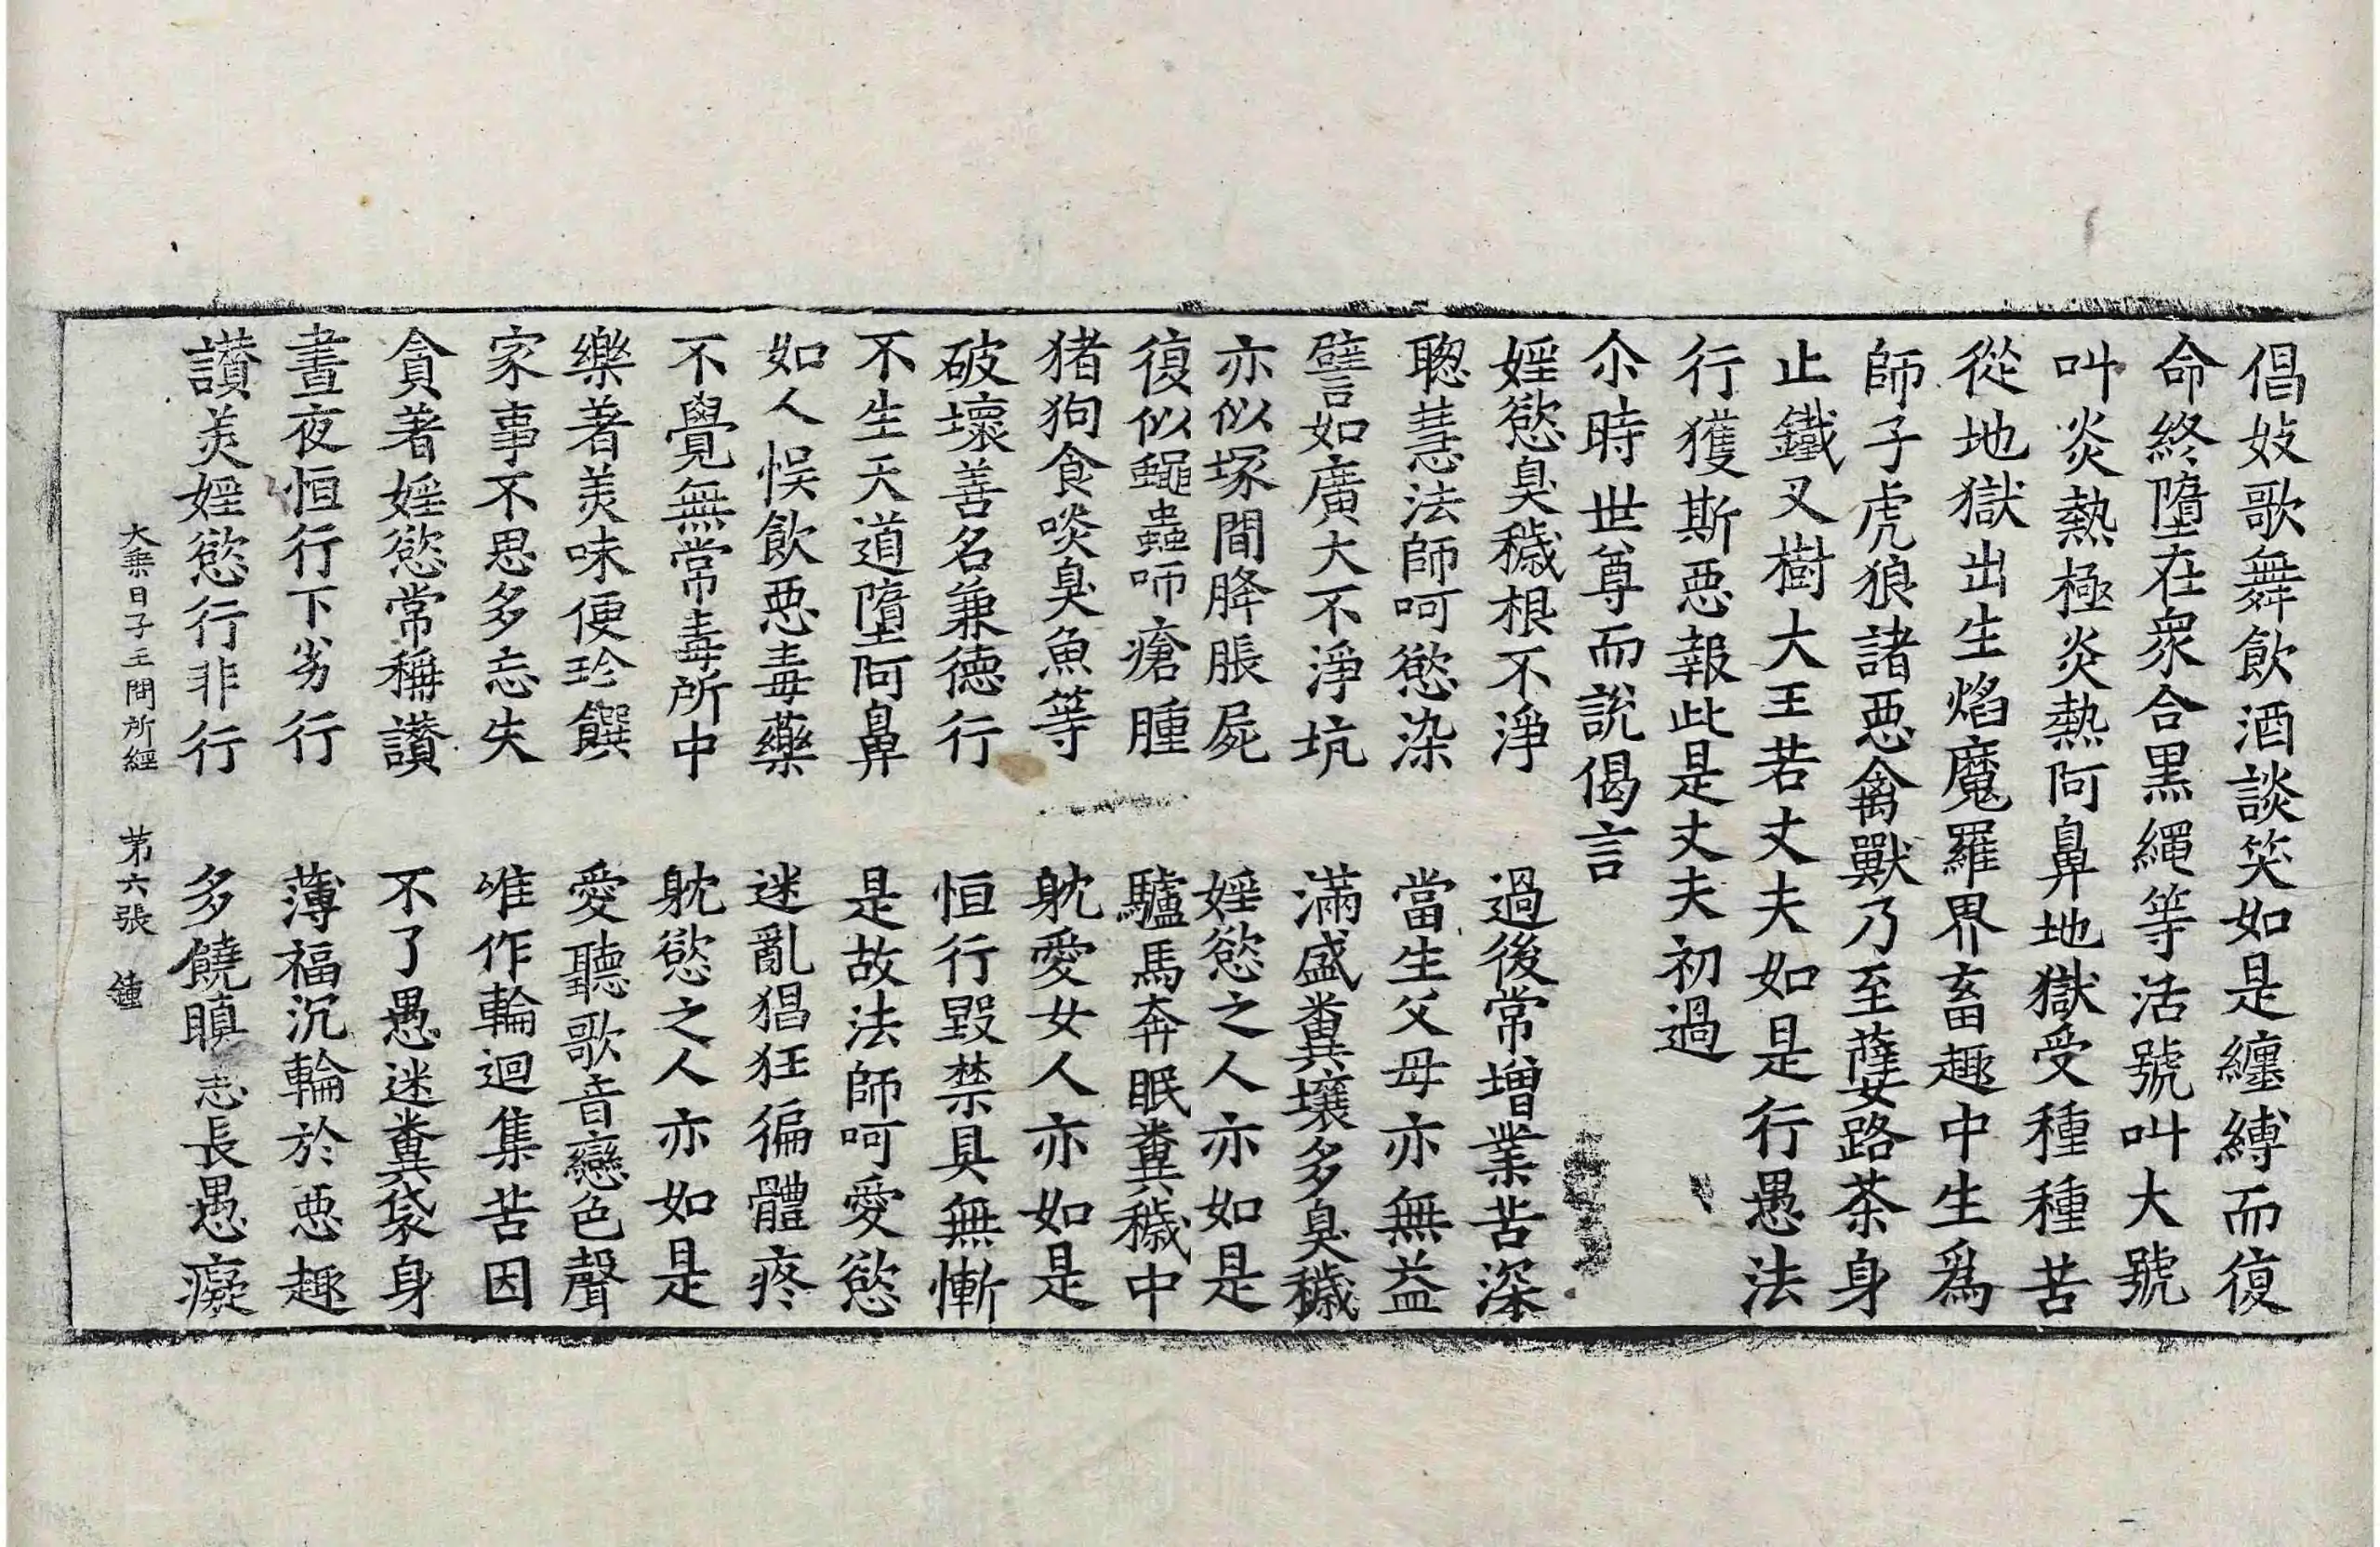 倡妓歌舞飲酒談笑如是纏縛而復
命終墮在衆合黑繩等活號叫大號
叫炎熱極炎熱阿鼻地獄受種種苦
從地獄出生焰魔羅界畜趣中生爲
師子虎狼諸惡禽獸乃至蕯路茶身
止鐵叉樹大王若丈夫如是行愚法
行獲斯惡報此是丈夫初過
尒時世尊而說偈言
婬慾臭穢根不淨　過後常增業苦深
聰慧法師呵慾染　當生父母亦無益
譬如廣大不淨坑　滿盛糞壤多臭穢
亦似塚間胮脹屍　婬慾之人亦如是
復似蠅蟲咂瘡腫　驢馬奔眠糞穢中
猪狗食啖臭魚等　躭愛女人亦如是
破壞善名兼德行　恒行毀禁具無慚
不生天道墮阿鼻　是故法師呵愛慾
如人悮飲惡毒藥　迷亂猖狂徧體疼
不覺無常毒所中　躭慾之人亦如是
樂著美味便珍饌　愛聽歌音戀色聲
家事不思多忘失　唯作輪迴集苦因
貪著婬慾常稱讃　不了愚迷糞袋身
晝夜恒行下劣行　薄福沉輪於惡趣
讃美婬慾行非行　多饒瞋恚長愚癡
大乗日子王問所經　苐六張　鍾